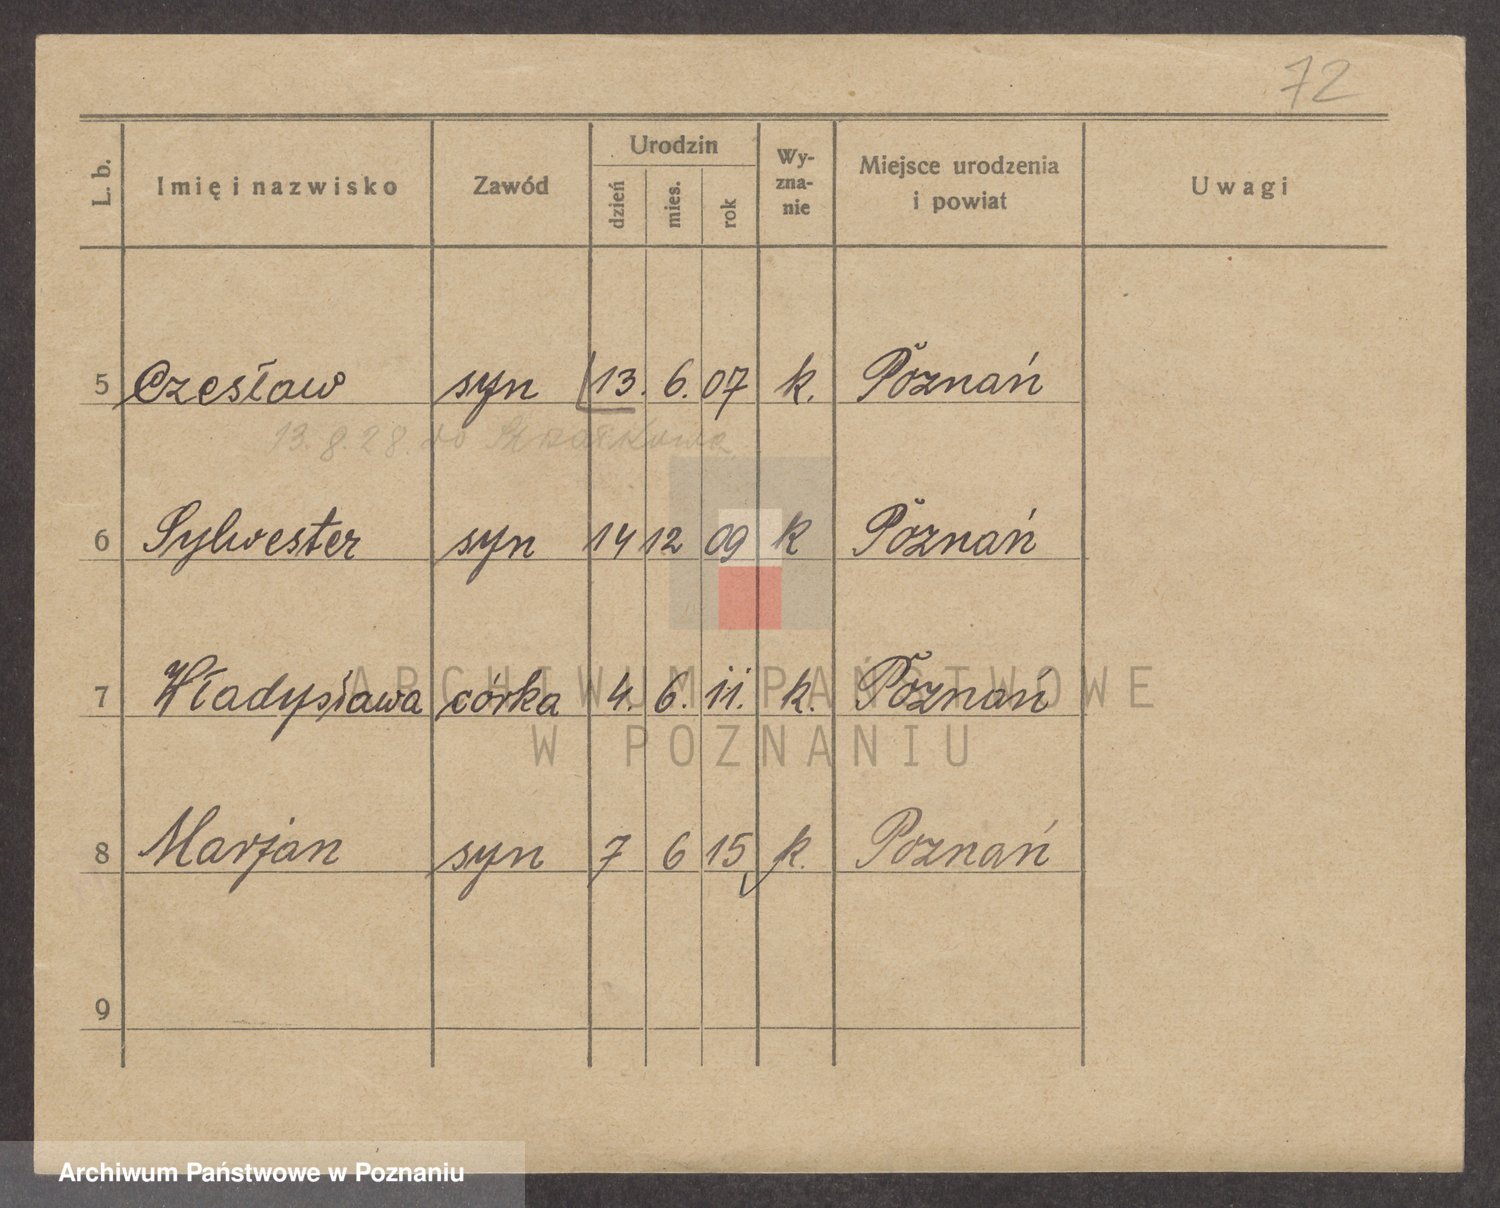 72
L. b. Imię i nazwisko Zawód Urodzin dzień mies. rok Wy-zna-nie Miejsce urodzenia i powiat Uwagi
5 Czesław syn 13. 6. 07 k. Poznań
13. 8. 28. do
6 Sylwester syn 14 12 09 k Poznań
7 Władysława córka 4. 6. 11. k. Poznań
ARCHIWUM PAŃSTWOWE
W POZNANIU
8 Marjan syn 7 6 15 k. Poznań
9
Archiwum Państwowe w Poznaniu